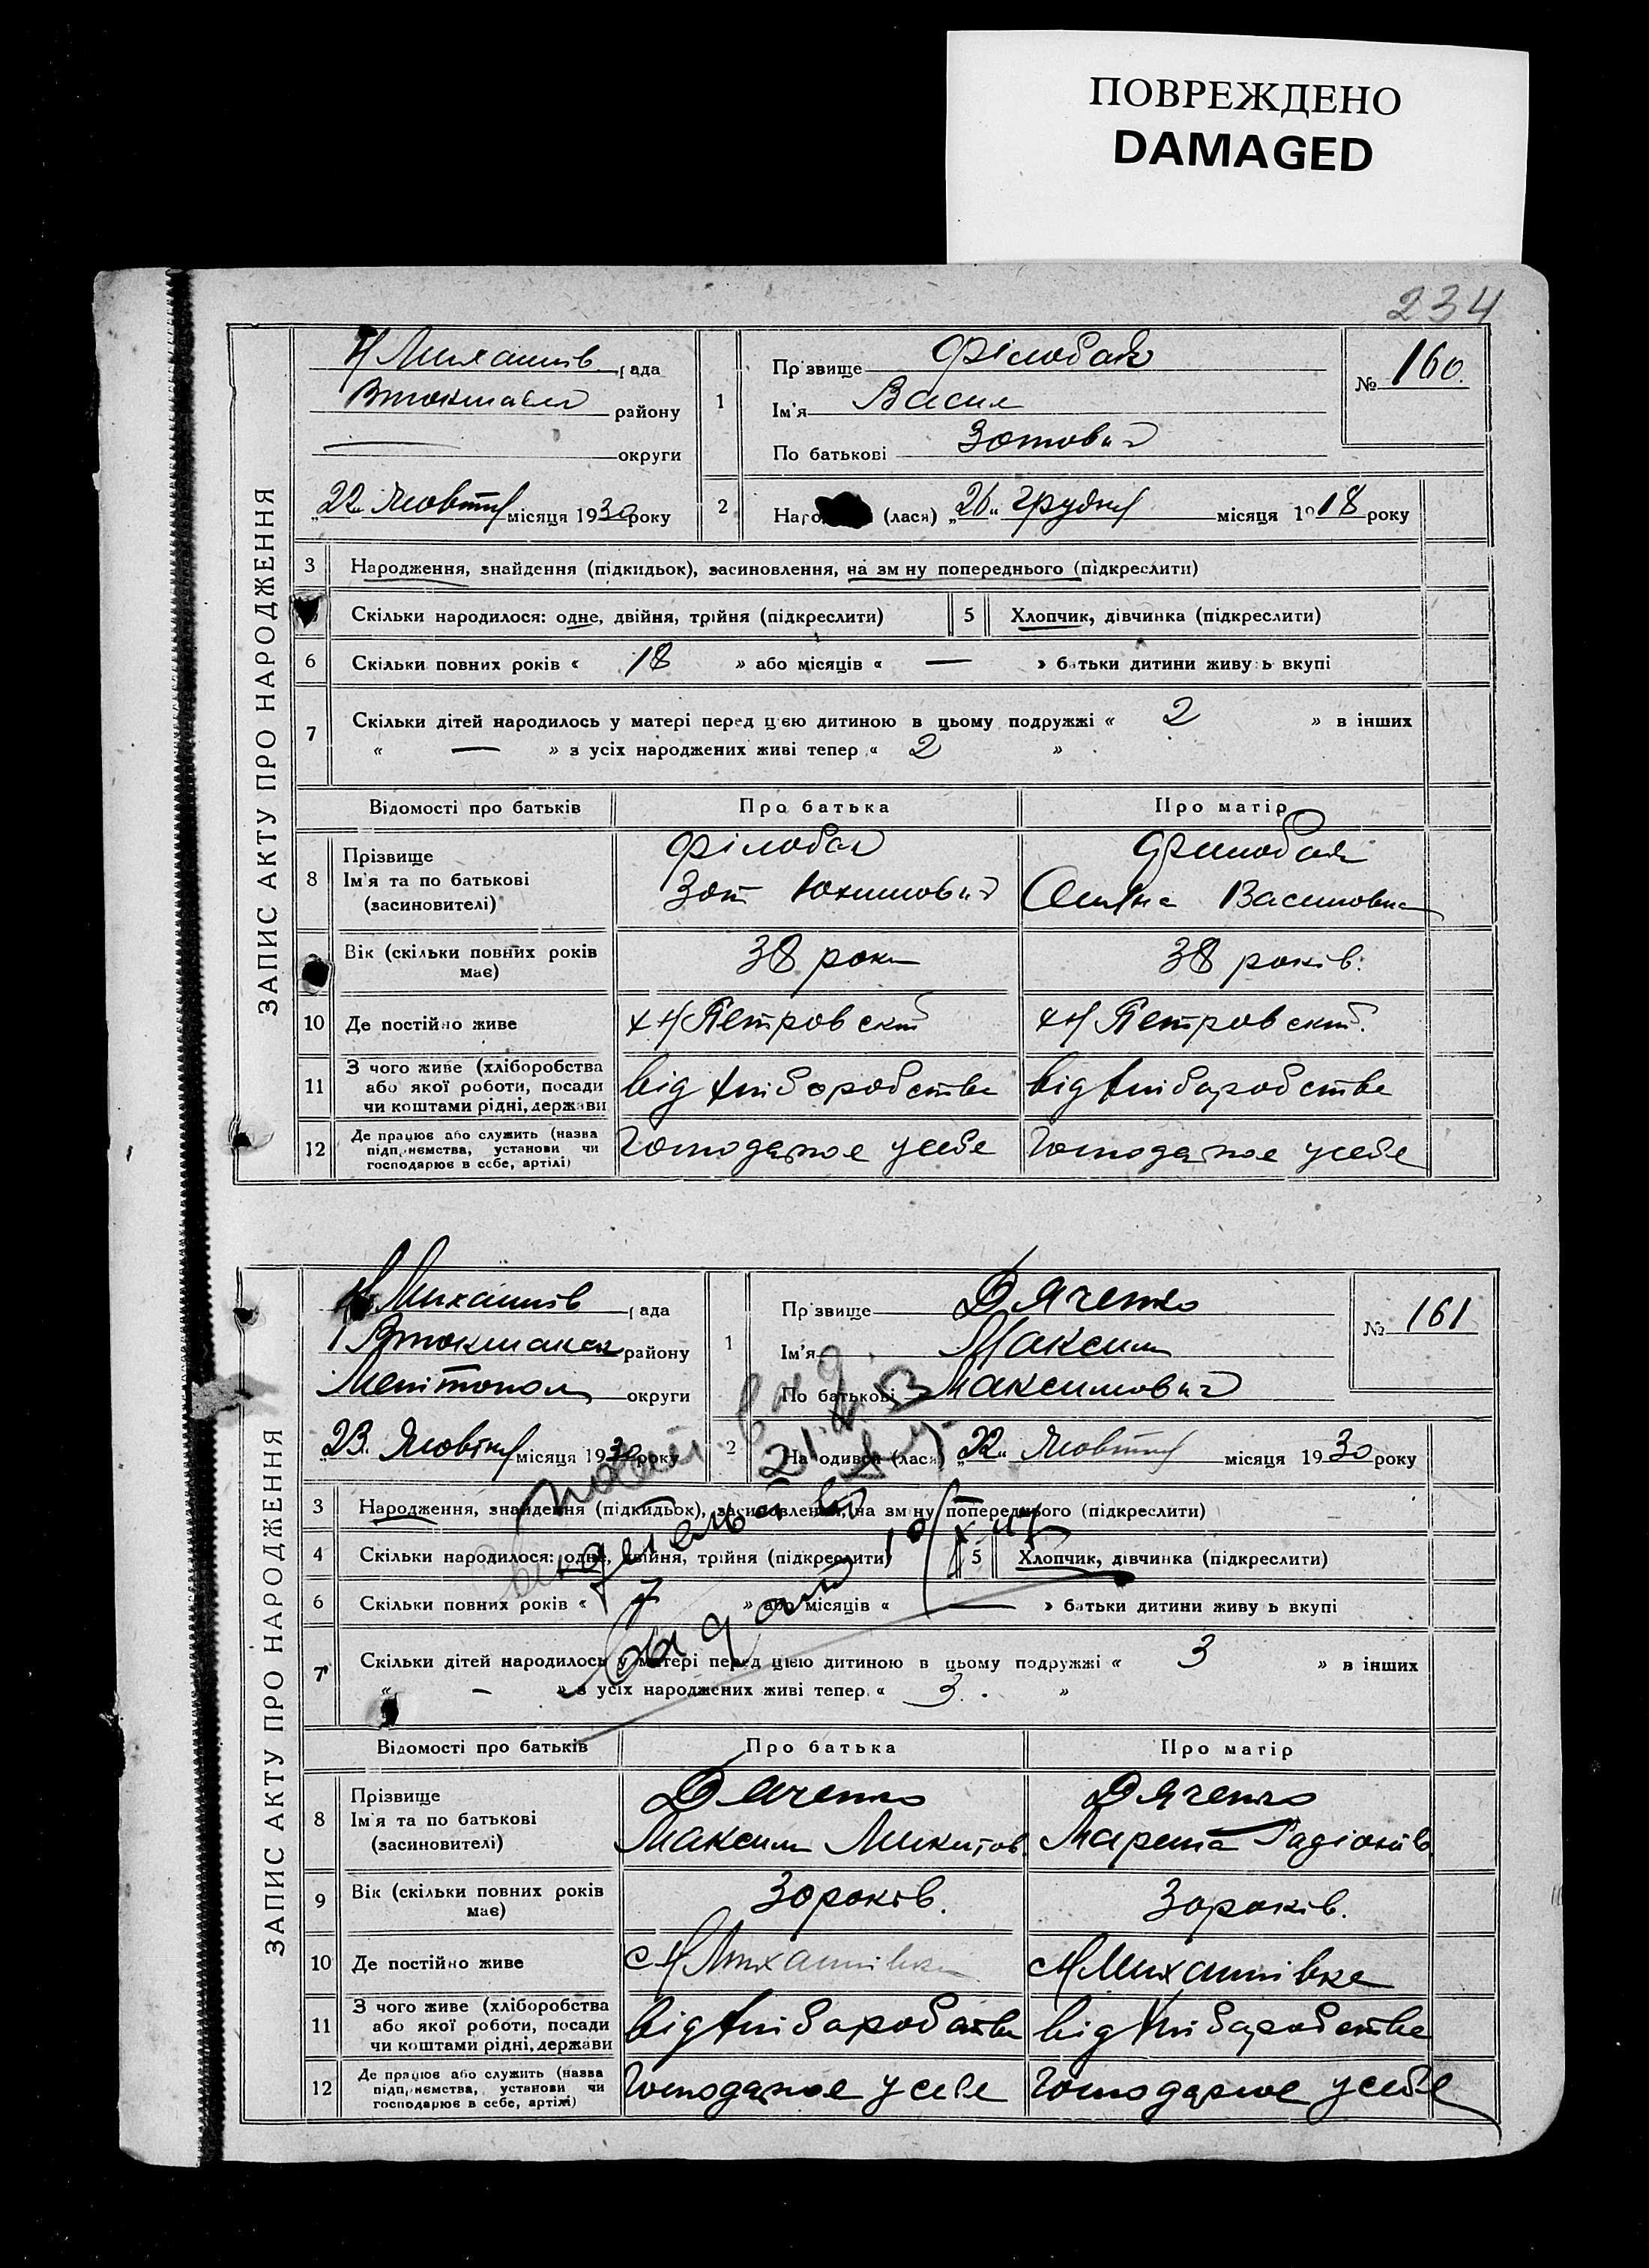 ПОВРЕЖДЕНО
DAMAGED
234
ЗАПИС АКТУ ПРО НАРОДЖЕННЯ
рада
району
округи
22 Жовтня місяця 1930 року
1
Прізвище Філобок
Ім'я Васил
По батькові Зотович
№ 160.
2
(лася) „26„ грудня місяця 1918 року
3 Народження, знайдення (підкидьок), засиновлення, на зм ну попереднього (підкреслити)
Скільки народилося: одне, двійня, трійня (підкреслити) 5 Хлопчик, дівчинка (підкреслити)
6 Скільки повних років « 18 » або місяців « — » батьки дитини живу ь вкупі
7 Скільки дітей народилось у матері перед цією дитиною в цьому подружжі « 2 » в інших
« — » з усіх народжених живі тепер « 2 »
Відомості про батьків Про батька Про матір
8 Прізвище
Ім'я та по батькові
(засиновителі)
Зот Юхимович
Василовна
Вік (скільки повних років
має)
38 роки 38 років.
10 Де постійно живе х Н Петровский х Н Петровский.
11 З чого живе (хліборобства
або якої роботи, посади
чи коштами рідні, держави
від хліборобства від хліборобства
12 Де працює або служить (назва
підприємства, установи чи
господарює в себе, артілі)
Господарює у себе Господарює у себе
ЗАПИС АКТУ ПРО НАРОДЖЕННЯ
рада
району
округи
23. Жовтня місяця 1930 року
1
Прізвище Дяченко
Ім'я Максим
По батькові Максимович
№ 161
2
Народився (лася) „22„ Жовтня місяця 1930 року
3 Народження, знайдення (підкидьок), засиновлення, на зм ну попереднього (підкреслити)
4 Скільки народилося: одне, двійня, трійня (підкреслити) 5 Хлопчик, дівчинка (підкреслити)
6 Скільки повних років « 7 » або місяців « — » батьки дитини живу ь вкупі
7 Скільки дітей народилось у матері перед цією дитиною в цьому подружжі « 3 » в інших
« - » з усіх народжених живі тепер « 3. »
Відомості про батьків Про батька Про матір
8 Прізвище
Ім'я та по батькові
(засиновителі)
Дяченко Дяченко
Максим Микитов. Радіонів.
9 Вік (скільки повних років
має)
30 років. 30 років.
10 Де постійно живе с Н Михайлівка с Н Михайлівка
11 З чого живе (хліборобства
або якої роботи, посади
чи коштами рідні, держави
від хліборобства від хліборобства
12 Де працює або служить (назва
підприємства, установи чи
господарює в себе, артілі)
Господарює у себе Господарює у себе